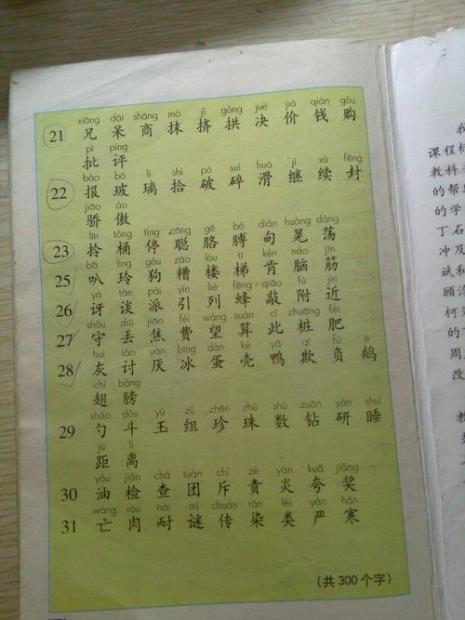 xiōng dāi shāng mǒ jǐ gǒng jué jià qián gòu
21 兄 呆 商 抹 挤 拱 决 价 钱 购
pī píng
批 评
bào bō li shí pò suì huá jì xù fēng
22 报 玻 璃 拾 破 碎 滑 继 续 封
jiāo ào
骄 傲
līn tǒng tíng cōng gē bo diàn huàng dàng
23 拎 桶 停 聪 胳 膊 甸 晃 荡
bā líng gǒu zāo lóu tī kěn nǎo jīn
25 叭 玲 狗 糟 楼 梯 肯 脑 筋
yà tán pài yǐn liè fēng qiāo fù jìn
26 讶 谈 派 引 列 蜂 敲 附 近
shǒu diū jiāo fèi wàng suàn cǐ zhuāng féi
27 守 丢 焦 费 望 算 此 桩 肥
huī tǎo yàn bīng dàn ké yā qī fù é
28 灰 讨 厌 冰 蛋 壳 鸭 欺 负 鹅
chì bǎng
翅 膀
sháo dǒu yù zǔ zhēn zhū shù zuàn yán shuì
29 勺 斗 玉 组 珍 珠 数 钻 研 睡
jù lí
距 离
yóu jiǎn chá tuán chì zé yán kuā jiǎng
30 油 检 查 团 斥 责 炎 夸 奖
wáng ròu nài mí chuán rǎn lèi yán hán
31 亡 肉 耐 谜 传 染 类 严 寒
(共300个字)
课程标
教科
的帮
的学
丁石
冲及
试和
柯
的
周
改
教